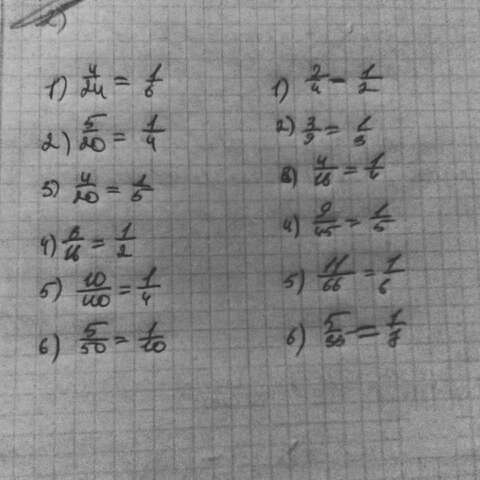 2)
1) 4/24 = 1/6
2) 5/20 = 1/4
3) 4/20 = 1/5
4) 8/16 = 1/2
5) 10/40 = 1/4
6) 5/50 = 1/10
1) 2/4 = 1/2
2) 3/9 = 1/3
3) 4/16 = 1/4
4) 9/45 = 1/5
5) 11/66 = 1/6
6) 5/35 = 1/7